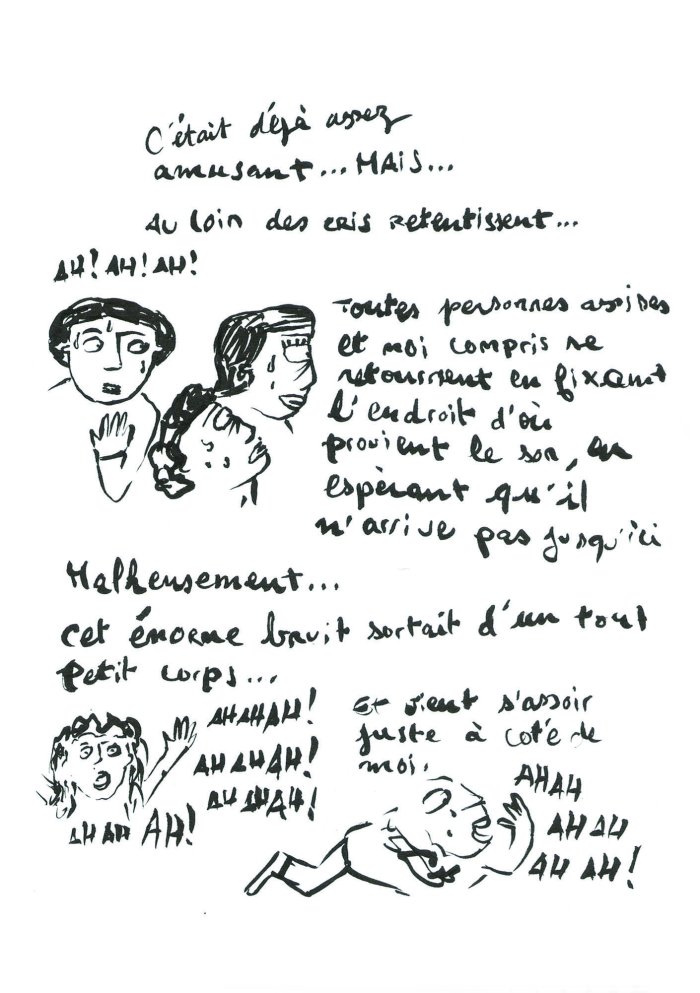 C'était déjà assez
amusant... MAIS...
Au loin des cris retentissent...
AH! AH! AH!
Toutes personnes assises
et moi compris se
retournent en fixant
l'endroit d'où
provient le son, en
espèrant qu'il
n'arrive pas jusqu'ici
Malheusement...
cet énorme bruit sortait d'un tout
petit corps...
AH AH AH!
AH AH AH!
AH AH AH!
AH AH AH!
Et vient s'assoir
juste à coté de
moi.
AH AH
AH AH
AH AH!